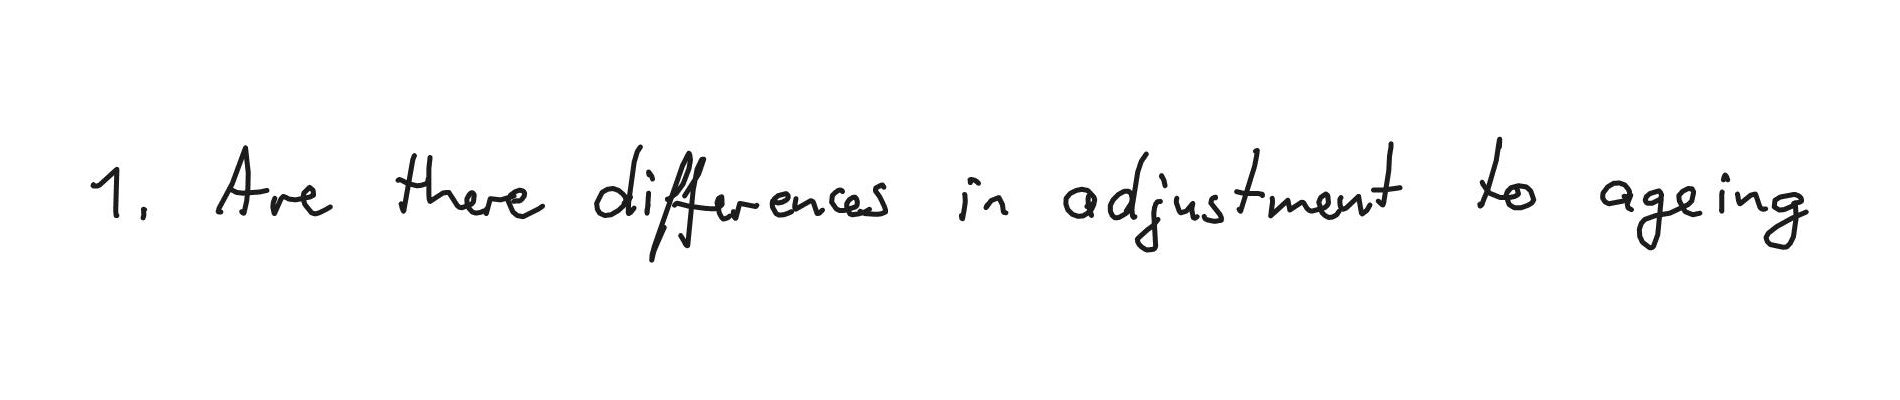 1. Are there differences in adjustment to ageing